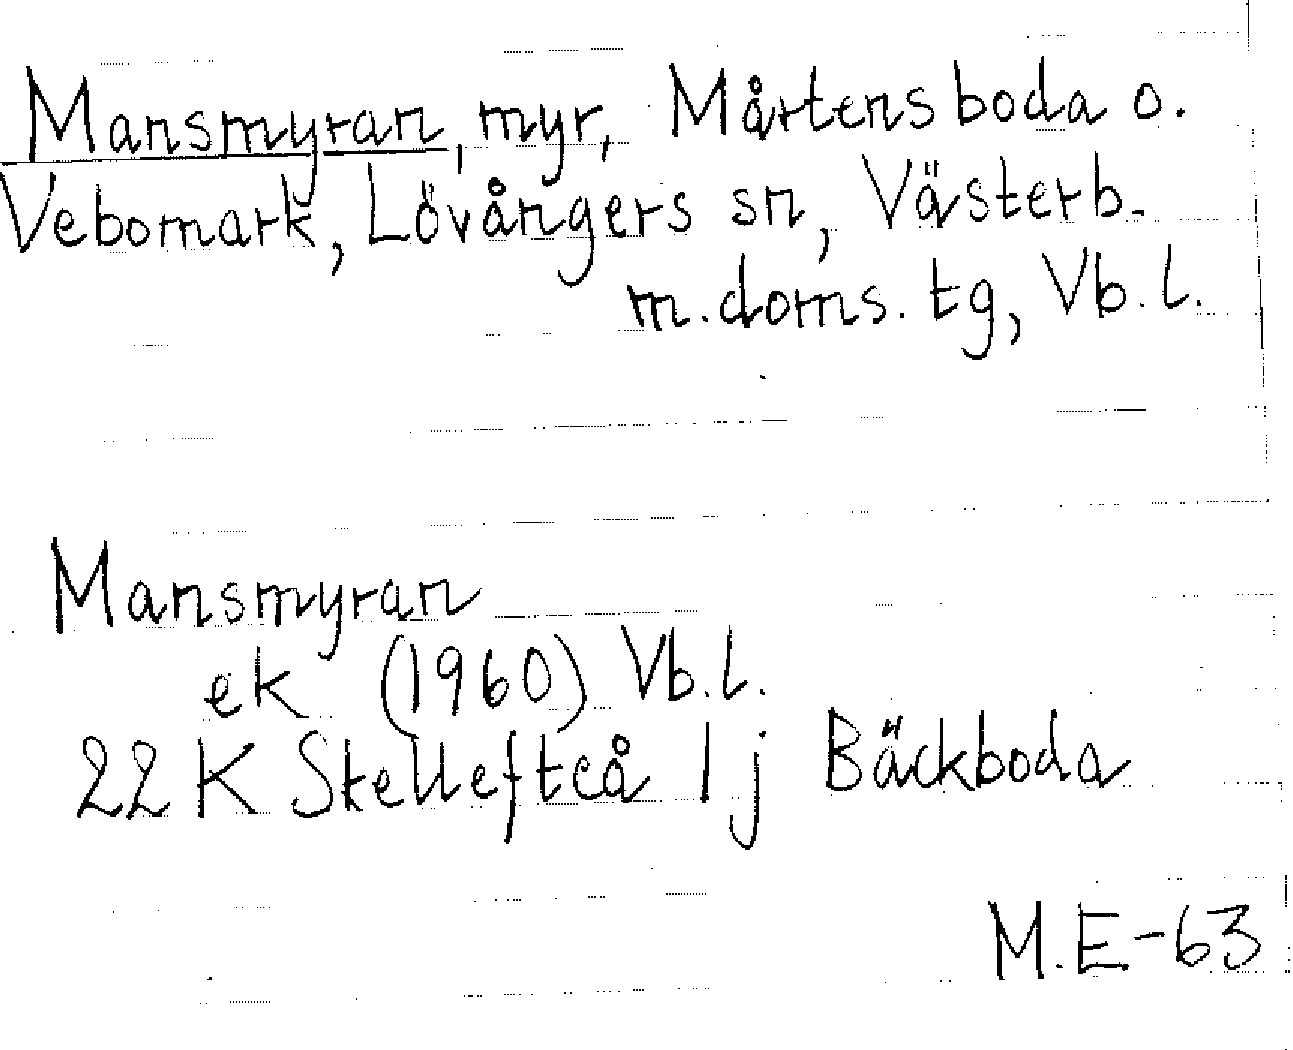 Mansmyran, myr, Mårtensboda o.
Vebomark, Lövångers sn, Västerb.
m.doms. tg, Vb.l.
Mansmyran
ek (1960) Vb.l.
22 K Skellefteå 1j Bäckboda
M.E-63